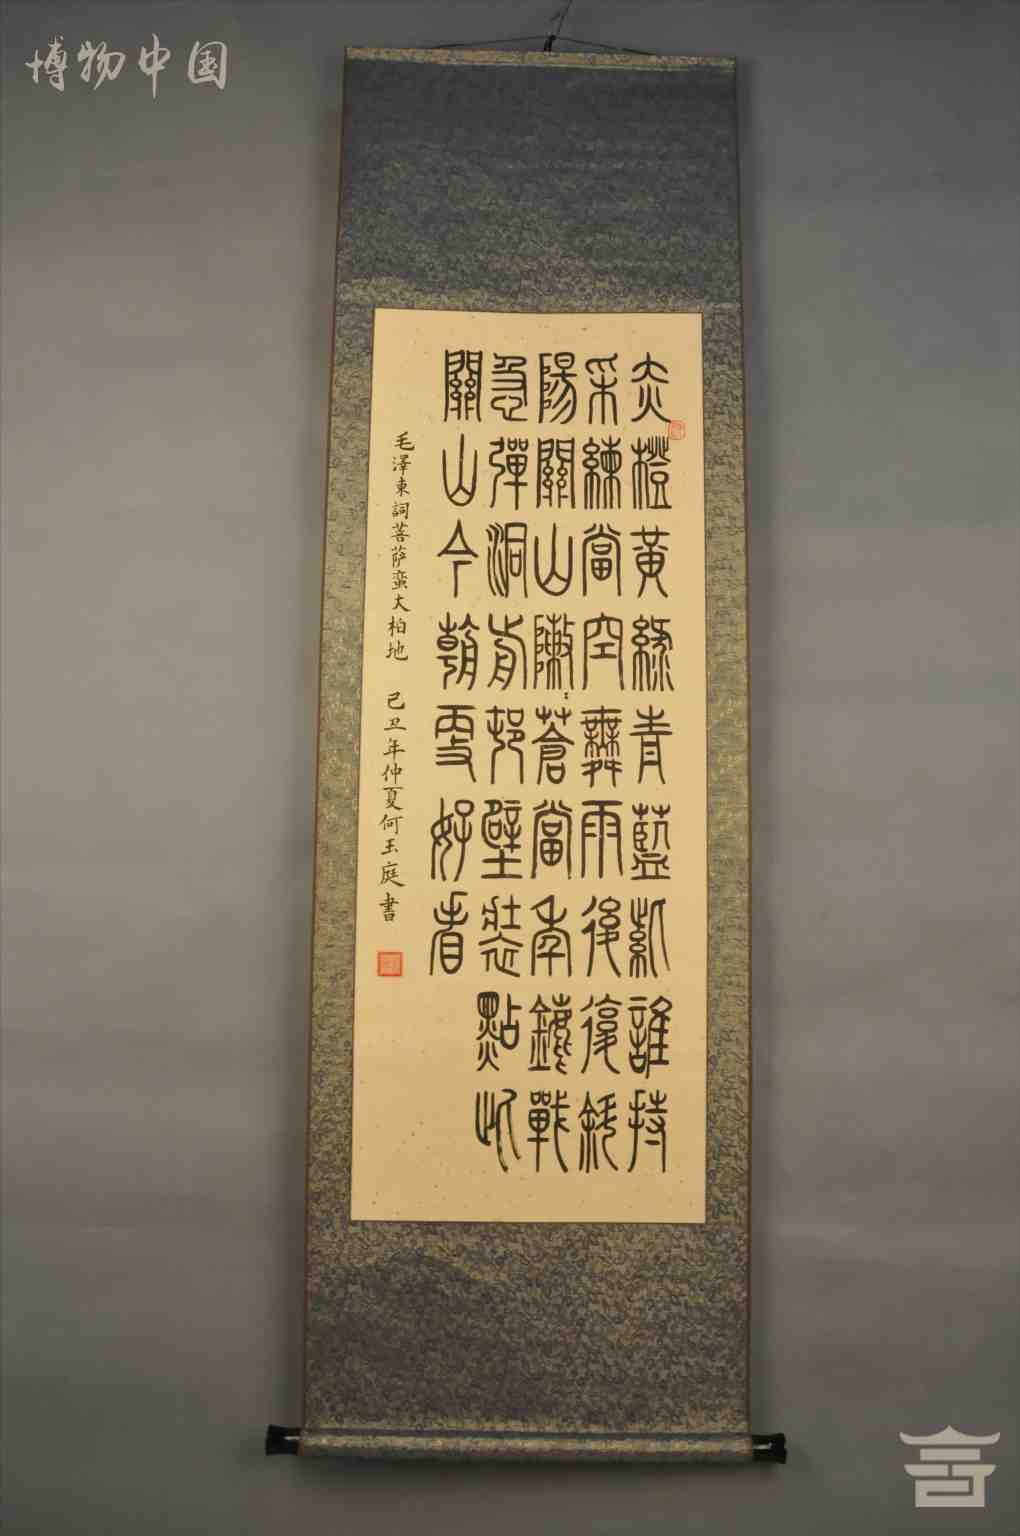 博物中国
赤橙黃綠青藍紫誰持
采練當空舞雨後復斜
陽關山陣：蒼當年鏖戰
急彈洞前邨壁裝點此
關山今朝更好看
毛澤東詞菩萨蛮大柏地 己丑年仲夏何玉庭書